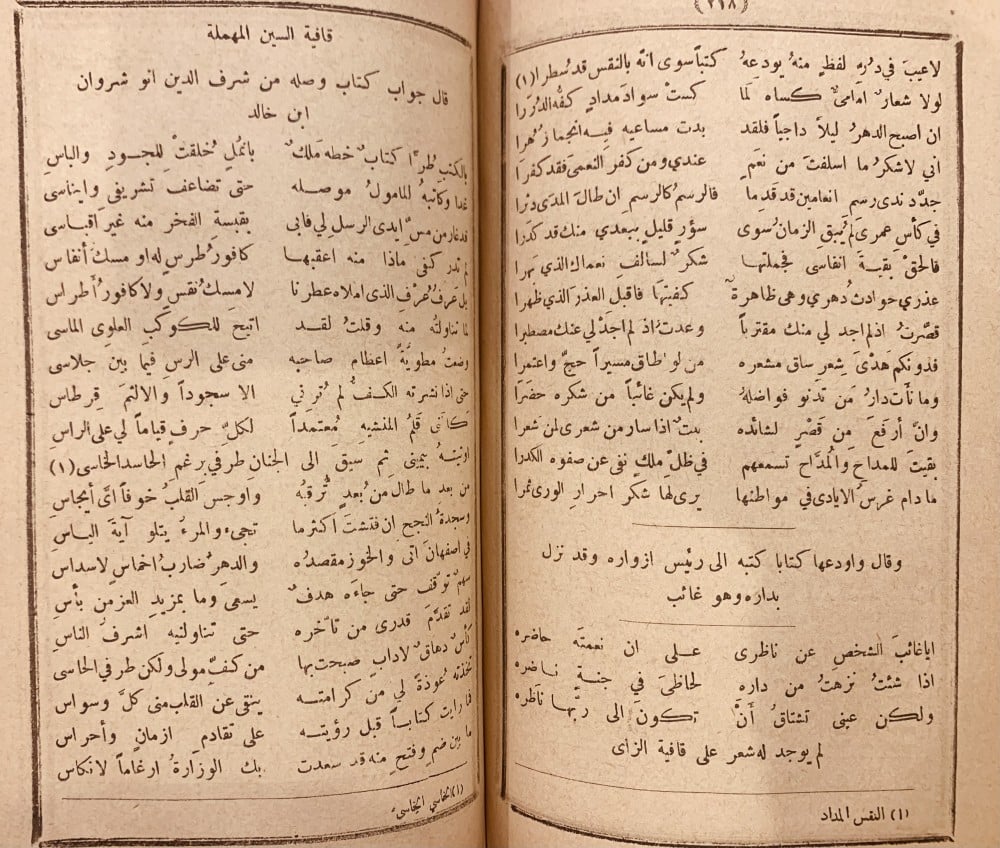 (٢١٨)
لاعيبَ في دُرّه لفظٍ منهُ يودعهُ كتباً سوى انّه بالنقس قد سُطرا (١)
لولا شعارٌ اماميٌّ كساه لما كست سوادَ مدادٍ كفُّه الدُررا
ان اصبح الدهرُ ليلاً داجياً فلقد بدت مساعيه فيه انجماً زُهرا
اني لاشكرُ ما اسلفتَ من نعمٍ عندي ومن كفر النعمى فقد كفرا
جدّد ندى رسمِ انعامين قد قدما فالرسمُ كالرسمِ ان طالَ المدى دثرا
في كأس عمري لم يُبقِ الزمانُ سوى سؤرٍ قليلٍ ببعدي منك قد كدرا
فالحقْ بقيةَ انفاسي فجملتها شكرٌ لسالف نعماك الذي بهرا
عذري حوادث دهري وهي ظاهرةٌ كفيتها فاقبل العذرَ الذي ظهرا
قصّرتُ اذ لم اجد لي منك مقترباً وعدتُ اذ لم اجدْ لي عنك مصطبرا
فدونكم هَدْيَ شعرٍ ساق مشعره من لو اطاق مسيراً حجّ واعتمرا
وما نأت دارُ مَن تدنو فواضلهُ ولم يكن غائباً من شكره حضَرَا
وانّ أرفعَ مِن قَصْرٍ لشائده بيتٌ اذا سار من شعري لمن شعرا
بقيتَ للمداحِ والمُدّاحِ تسمعهم في ظلّ ملكٍ نفى عن صفوه الكدرا
ما دام غرسُ الايادي في مواطنها يرى لها شكر احرار الورى ثمرا
وقال واودعها كتابا كتبه الى رئيس ازواره وقد نزل
بداره وهو غائب
اياغائبَ الشخصِ عن ناظري على ان نعمتَه حاضره
اذا شئتُ نزهتُ من داره لحاظيَ في جنةٍ ناضره
ولكن عيني تشتاقُ أنْ تكون الى ربّها ناظره
لم يوجد له شعر على قافية الزاى
(١) النقس المداد
قافية السين المهملة
قال جواب كتاب وصله من شرف الدين انو شروان
ابن خالد
بالكتبِ طرًّا كتابٌ خطه مَلكٌ بانمُلٍ خُلقتْ للجودِ والباسِ
غدا وكاتبهُ المامولُ موصله حتى تضاعف تشريفي وايناسى
قد غار من مسّ ايدى الرسلِ لي فابى بقبسة الفخر منه غيرَ اقباسى
لم تدر كفى ماذا منه اعقبها كافورُ طرسٍ له او مسك أنفاس
بل عَرفُ عُرفِ الذى املاه عطرنا لا مسك نقسٍ ولا كافورُ أطراس
لما تناولتُه منه وقلتُ لقد اتيحَ للكوكبِ العلوى الماسى
وضعتُ مطويَّهُ اعظام صاحبه منى على الرس فيما بين جلاسى
حتى اذا نشرته الكفُّ لم تَرني الا سجوداً والا لثمَ قرطاس
كأننى قلمُ المنشيه مُعتمداً لكلّ حرفٍ قياماً لي على الراس
اوتيتهُ بيمينى ثم سيقَ الى الجنان طرفي برغم الحاسد الخاسى (١)
من بعد ما طال من بُعدٍ تُرقبُه واوجس القلبُ خوفاً اىَّ أيجاس
وسجدةُ النجح ان فتشتَ اكثر ما تجيء والمرءُ يتلو آيةَ الياسِ
في اصفهان اتى والخوز مقصدُه والدهرُ ضاربُ اخماسٍ لاسداس
سهمٌ توقف حتى جاءَه هدفٌ يسعى وما بمزيدِ العز من بأسِ
لقد تقدّمَ قدرى من تاخّره حتى تناولنيه اشرفُ الناسِ
كأسٌ دهاقٌ لادابٍ صبحت بها من كفِّ مولى ولكن طرفي الحاسى
تخذته عُوذةً لي من كرامته ينقى عن القلب منى كلَّ وسواس
فما رايت كتاباً قبل رؤيته على تقادم ازمانٍ وأحراس
ما بين ضمٍ وفتحٍ منه قد سعدت بك الوزارةُ ارغاماً لانكاس
(١) الخاسي الخاسىء